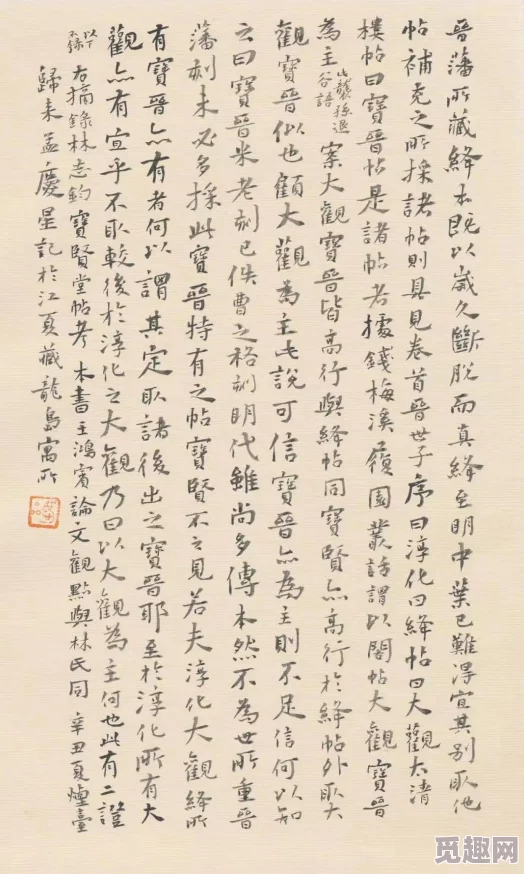 晉藩所藏絳本既以歲久斷脫而真絳至明中葉已難得宜其別取他
帖補充之所採諸帖則具見卷首晉世子序曰淳化曰絳帖曰大觀太清
樓帖曰寶晉帖是諸帖者據錢梅溪履園叢話謂以閣帖大觀寶晉
為主此襲孫退谷語案大觀寶晉皆高行與絳帖同寶賢亦高行於絳帖外取大
觀寶晉似也顧大觀為主其說可信寶晉亦為主則不足信何以知
之曰寶晉米老刻已佚曹之格刻明代雖尚多傳本然不為世所重晉
藩刻未必多採此寶晉特有之帖寶賢不之見若夫淳化大觀絳所
有寶晉亦有者何以謂其定取諸後出之寶晉耶至於淳化所有大
觀亦有宜乎不取較後於淳化之大觀乃曰以大觀為主何也此有二證
以下不錄右摘錄林志鈞寶賢堂帖考本書王鴻賓論文觀點與林氏同辛丑夏煙臺
歸來孟慶星記於江夏藏龍島寓所
覓趣网